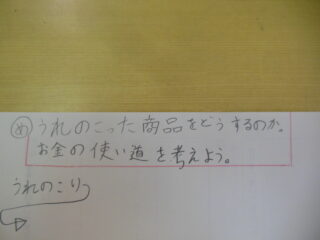 め うれのこった商品をどうするのか。
お金の使い道を考えよう。
うれのこり